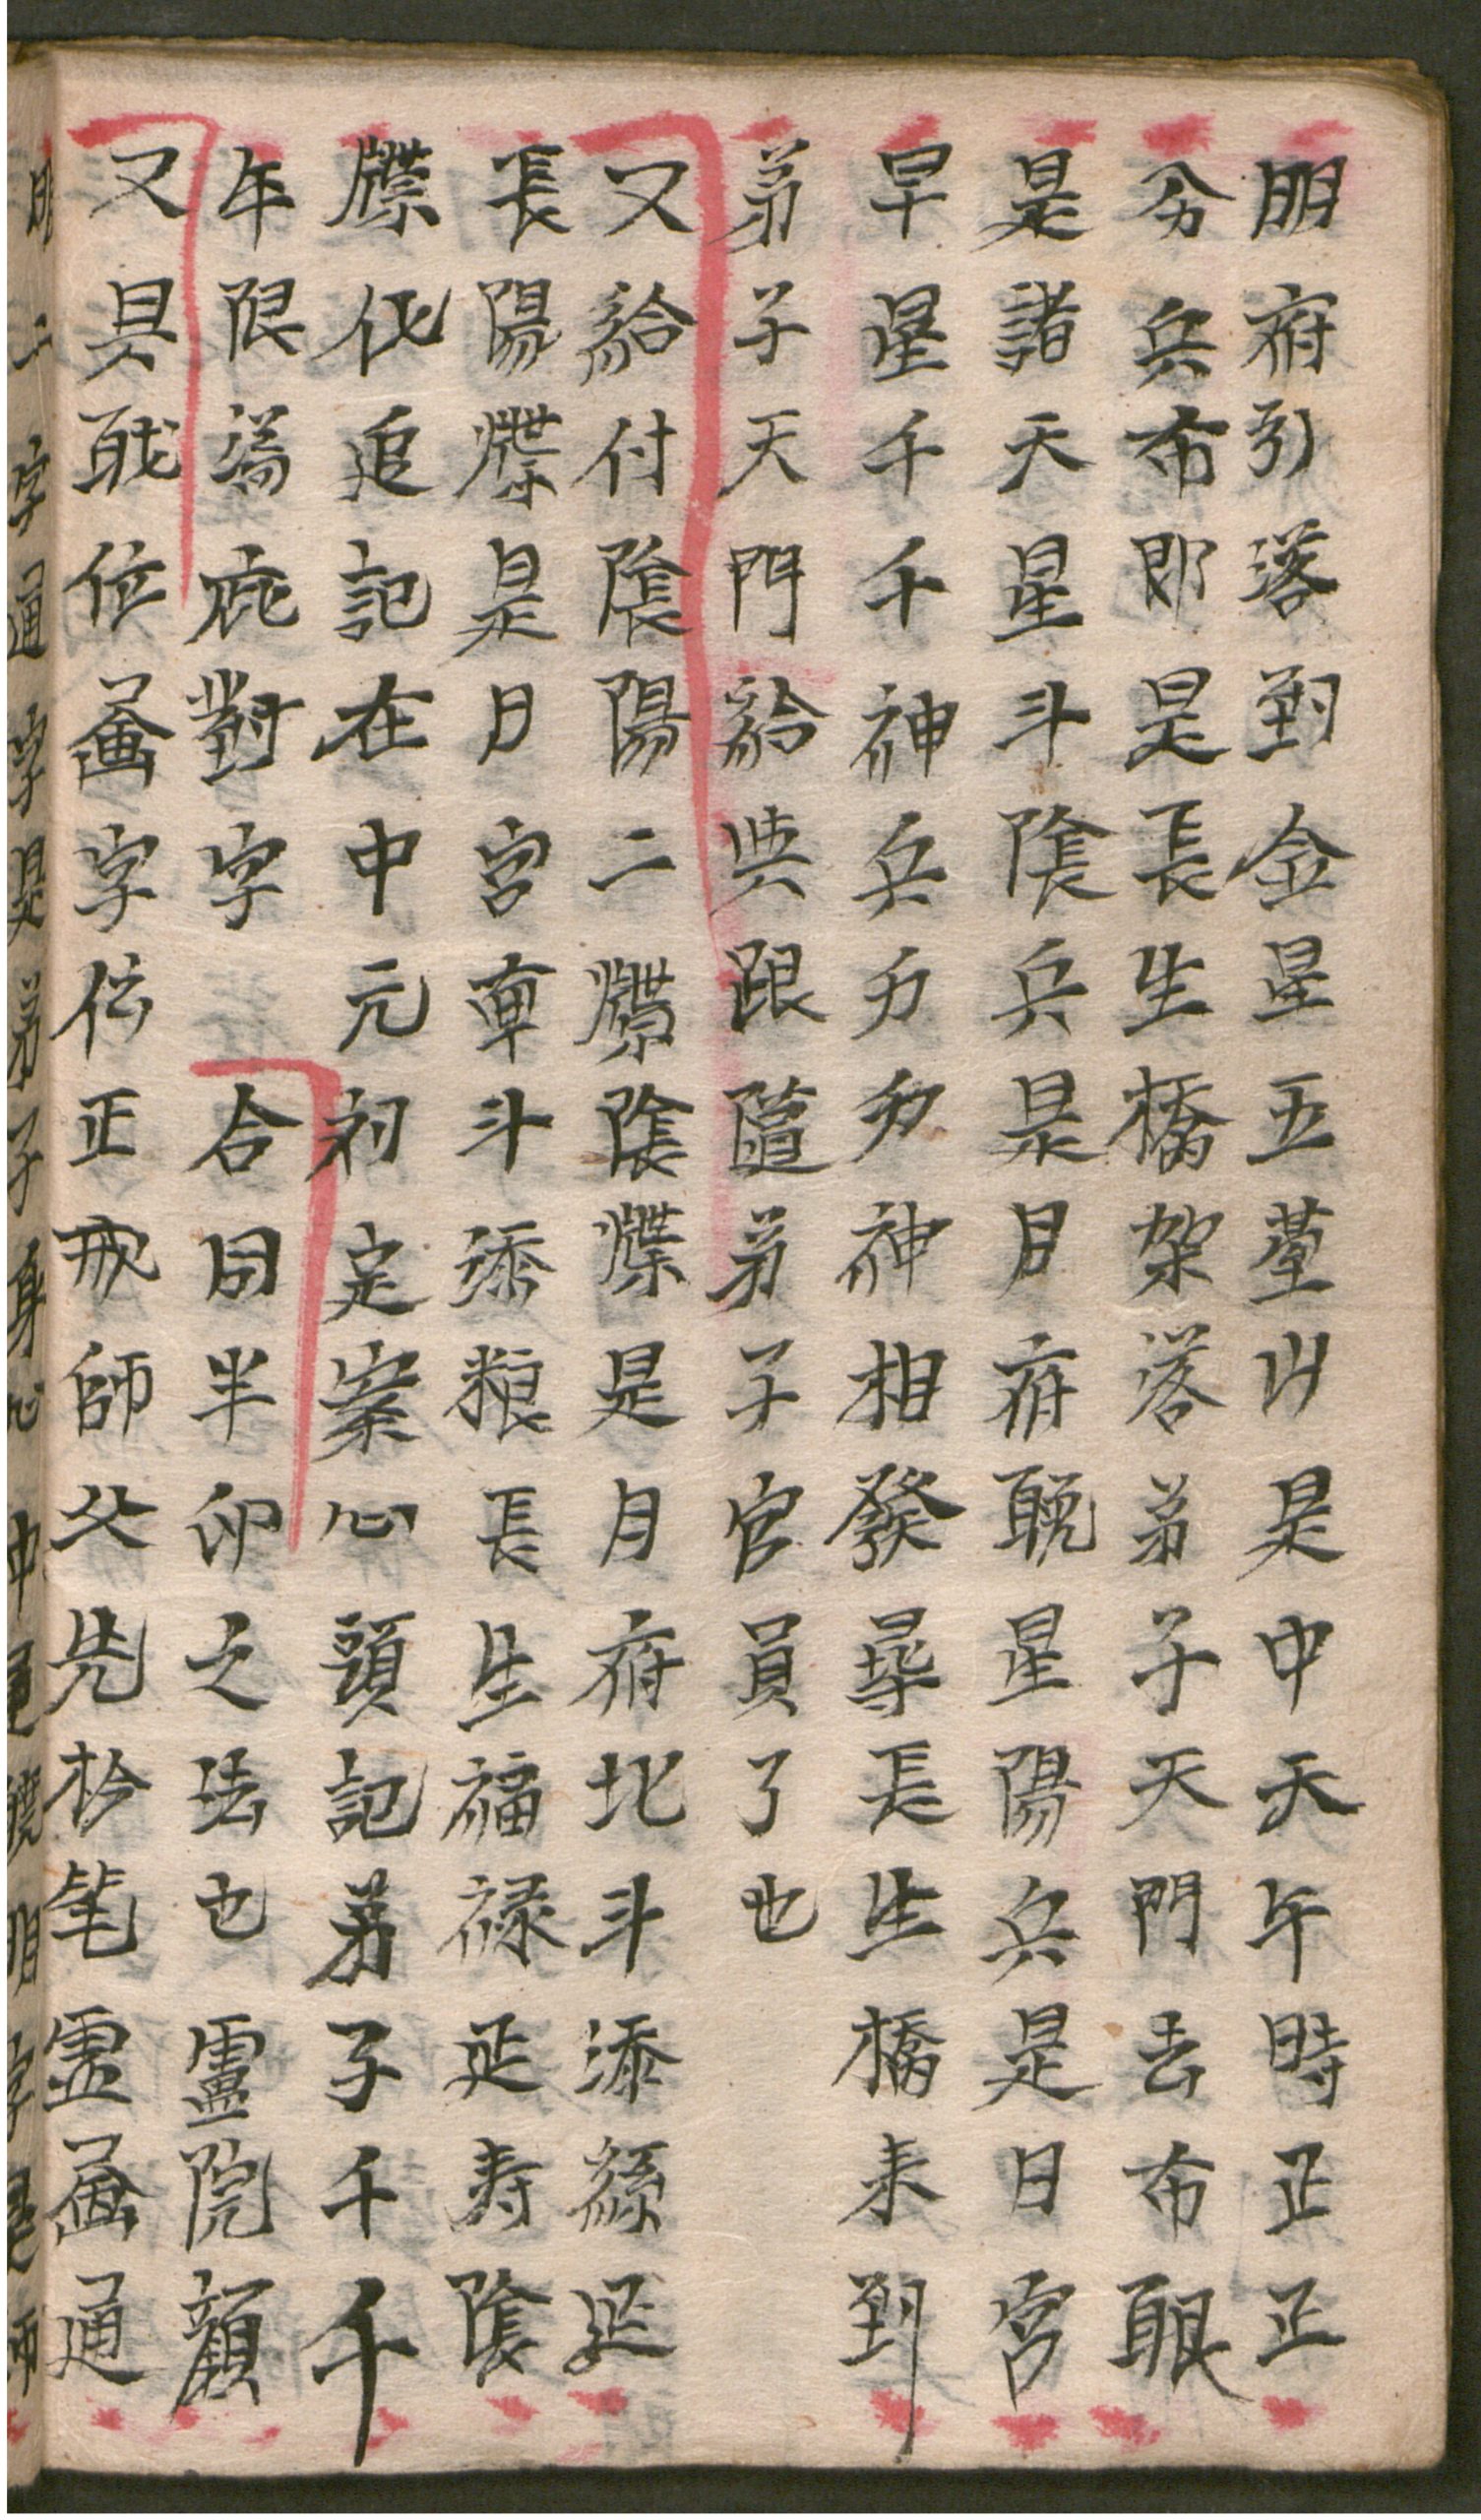 明府引落到金星五臺山是中天午時正正
分兵布即是長生橋架落弟子天門去布眼
是諸天星斗陰兵是月府晩星陽兵是日宮
早星千千神兵力力神相發尋長生橋来到
弟子天門給與跟隨弟子官員了也
又給付陰陽二牒陰牒是月府北斗添緣延
長陽牒是日宮車斗添粮長生福禄延寿陰
牒化追記在中元初定案心頭記弟子千千
年限滿庇對字 合同半印之法也 靈院顔
又具職位畫字伝正戒師父先拎笔虚畫通